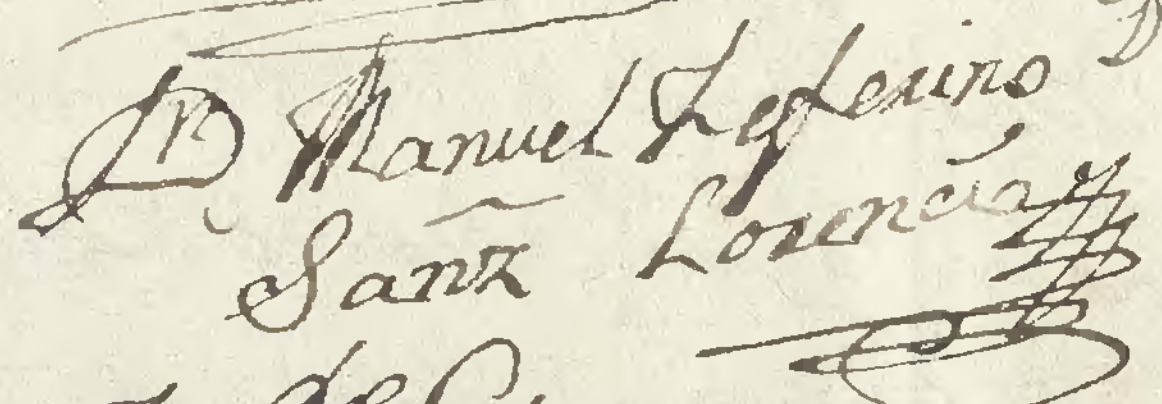 Dn Manuel Zeferino
Sanz Lorencio
de